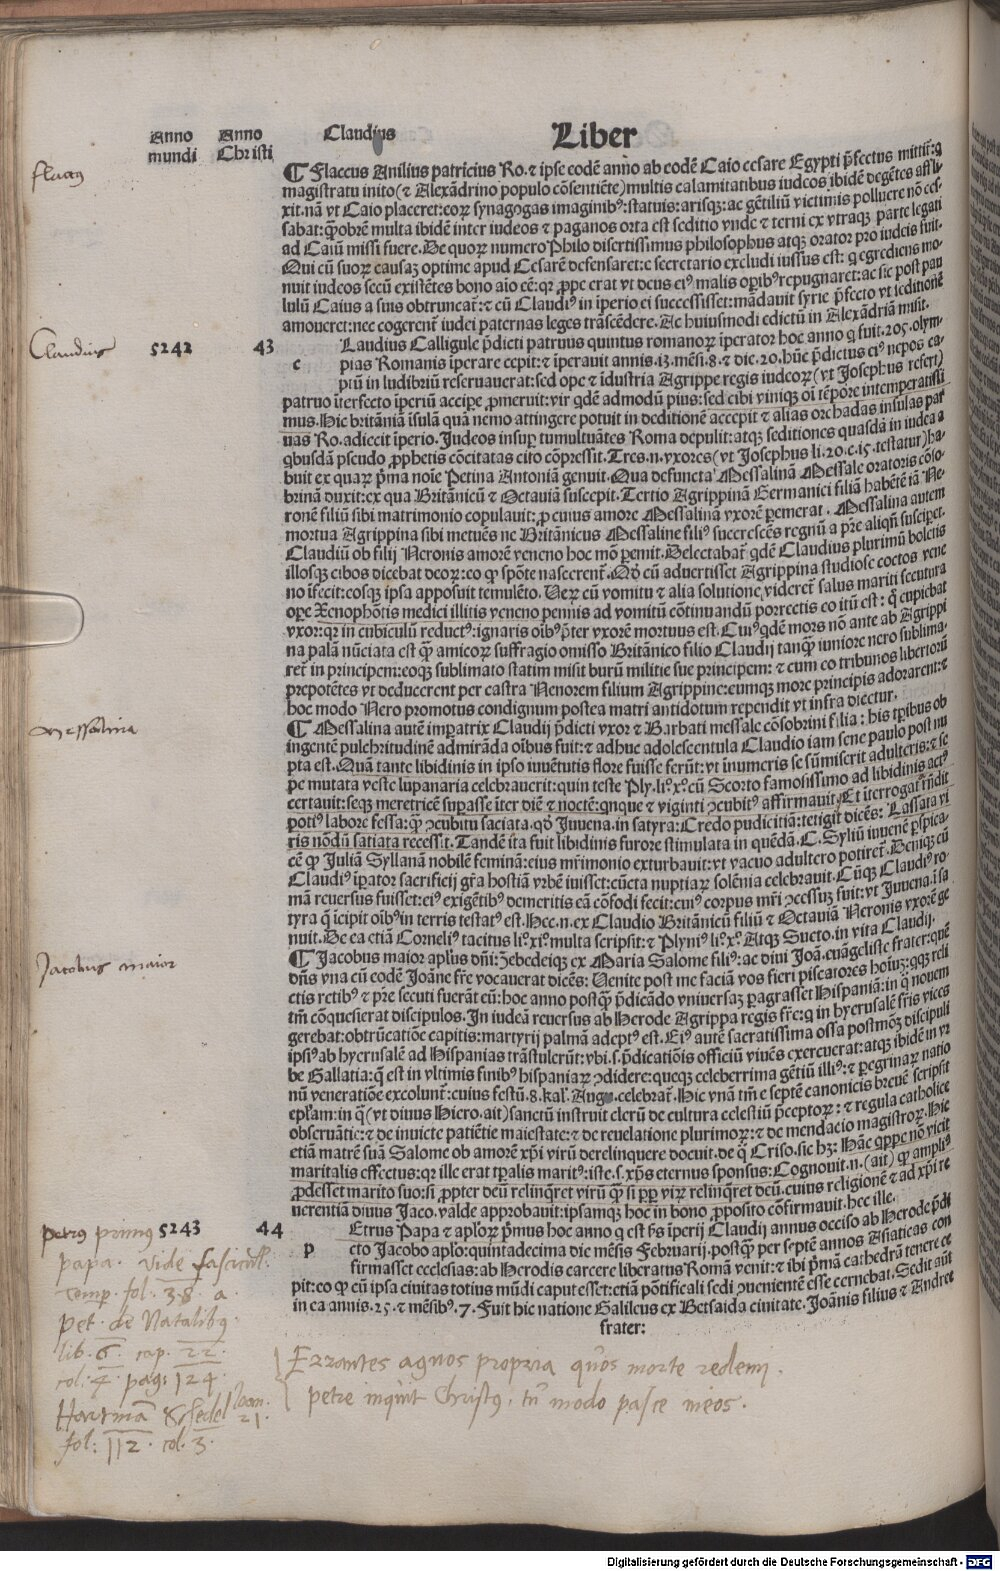 Anno Anno Claudius Liber
mundi Christi
flaccus
¶ Flaccus Anilius patricius Ro. ⁊ ipse codẽ anno ab eodẽ Caio cesare Egypti p̃fectus mittit̃: q
magistratu inito (⁊ Alexãdrino populo cõsentiẽte) multis calamitatibus iudeos ibidẽ degẽtes affli
xit. nã vt Caio placeret: eoꝝ synagogas imaginibꝰ: statuis: arisqꝫ: ac gẽtiliũ victimis polluere nõ ces
sabat: q̃obrẽ multa ibidẽ inter iudeos ⁊ paganos orta est seditio vnde ⁊ terni ex vtraqꝫ parte legati
ad Caiũ missi fuere. De quoꝝ numero Philo disertissimus philosophus atqꝫ orator pro iudeis fuit.
Qui cũ suoꝝ causaꝫ optime apud Cesarẽ defensaret: e secretario excludi iussus est: q egrediens mo
nuit iudeos secũ existẽtes bono aĩo eẽ: qꝛ ꝓpe erat vt deus eiꝰ malis opibꝰ repugnaret: ac sic post pau
lulũ Caius a suis obtruncat̃: ⁊ cũ Claudiꝰ in ĩperio ei successisset: mãdauit syrie p̃fecto vt seditionẽ
amoueret: nec cogerent̃ iudei paternas leges trãscẽdere. Ac huiusmodi edictũ in Alexãdriã misit.
Claudius 5242 43 Laudius Calligule p̃dicti patruus quintus romanoꝝ ĩperator hoc anno q fuit. 205. olym-
c pias Romanis ĩperare cepit: ⁊ ĩperauit annis. 13. mẽsi. 8. ⁊ die. 20. hũc p̃dictus eiꝰ nepos ca-
piũ in ludibriũ reseruauerat: sed ope ⁊ ĩdustria Agrippe regis iudeoꝝ (vt Josephus refert)
patruo ĩterfecto ĩperiũ accipe ꝓmeruit: vir qdẽ admodũ pius: sed cibi viniqꝫ oĩ tẽpore intemperatissi
mus. Hic britãniã ĩsulã quã nemo attingere potuit in deditionẽ accepit ⁊ alias orchadas insulas par
uas Ro. adiecit ĩperio. Judeos insup tumultuãtes Roma depulit: atqꝫ seditiones quasdã in iudea a
qbusdã pseudo ꝓphetis cõcitatas cito cõpressit. Tres. n. vxores (vt Josephus li. 20. c. 15. testatur) ha-
buit ex quaꝝ p̃ma noĩe Petina Antoniã genuit. Qua defuncta Messalinã Messale oratoris cõso-
brinã duxit: ex qua Britãnicũ ⁊ Octauiã suscepit. Tertio Agrippinã Germanici filiã habẽtẽ iã Ne-
ronẽ filiũ sibi matrimonio copulauit: ꝓ cuius amore Messalinã vxorẽ ꝑemerat. Messalina autem
mortua Agrippina sibi metuẽs ne Britãnicus Messaline filiꝰ succrescẽs regnũ a p̃re aliqñ susciperet.
Claudiũ ob filij Neronis amorẽ veneno hoc mõ ꝑemit. Delectabat̃ qdẽ Claudius plurimũ boletis
illosqꝫ cibos dicebat deoꝝ: eo ꝙ spõte nascerent̃. Qd́ cũ aduertisset Agrippina studiose coctos vene
no ĩfecit: eosqꝫ ipsa apposuit temulẽto. Ueꝝ cũ vomitu ⁊ alia solutione, videret̃ salus mariti secutura
ope Xenophõtis medici illitis veneno pennis ad vomitũ cõtinuandũ porrectis eo itũ est: q̃ cupiebat
vxor: qꝛ in cubiculũ reductꝰ: ignaris oĩbꝰ p̃ter vxorẽ mortuus est. Cuiꝰ qdẽ mors nõ ante ab Agrippi
na palã nũciata est q̃ꝫ amicoꝝ suffragio omisso Britãnico filio Claudij tanqꝫ iuniore nero sublima-
ret̃ in principem: eoqꝫ sublimato statim misit burũ militie sue principem: ⁊ cum eo tribunos libertorũ
prepotẽtes vt deducerent per castra Nenorem filium Agrippine: eumqꝫ more principis adorarent: ⁊
hoc modo Nero promotus condignum postea matri antidotum rependit vt infra dicetur.
Messalina
¶ Messalina autẽ imparatrix Claudij p̃dicti vxor ⁊ Barbati messale cõsobrini filia: his tpibus ob
ingentẽ pulchritudinẽ admirãda oĩbus fuit: ⁊ adhuc adolescentula Claudio iam sene paulo post nu
pta est. Quã tante libidinis in ipso iuuẽtutis flore fuisse ferũt: vt ĩnumeris se sũmiserit adulteris: ⁊ se
pe mutata veste lupanaria celebrauerit: quin teste Ply. liº. xº. cũ Scorto famosissimo ad libidinis actꝰ
certauit: seqꝫ meretricẽ supasse ĩter diẽ ⁊ noctẽ: qnque ⁊ viginti ꝯcubitꝰ affirmauit. Et ĩterrogat̃ rñdit
potiꝰ labore fessa: q̃ꝫ ꝯcubitu saciata. qd́ Juuena. in satyra: Credo pudicitiã: tetigit dicẽs: Lassata vi
ris nõdũ satiata recessit. Tandẽ ita fuit libidinis furore stimulata in quẽdã. C. Syliũ iuuenẽ p̃spica-
cẽ ꝙ Juliã Syllanã nobilẽ feminã: eius mr̃imonio exturbauit: vt vacuo adultero potiret̃. Deniqꝫ cũ
Claudiꝰ ĩpator sacrificij gr̃a hostiã vrbẽ iuisset: cũcta nuptiaꝝ solẽnia celebrauit. Cũqꝫ Claudiꝰ ro-
mã reuersus fuisset: eiꝰ exigẽtibꝰ demeritis eã cõfodi fecit: cuiꝰ corpus mr̃i ꝯcessuꝫ fuit: vt Juuena. ĩ sa
tyra q̃ ĩcipit oĩbꝰ in terris testatꝰ est. Hec. n. ex Claudio Britãnicũ filiũ ⁊ Octauiã Neronis vxorẽ ge
nuit. De ea etiã Corneliꝰ tacitus liº. xiº. multa scripsit: ⁊ Plyniꝰ liº. xº. Atqꝫ Sueto. in vita Claudij.
Jacobus maior
¶ Jacobus maior apl̃us dñi: Zebedeiqꝫ ex Maria Salome filiꝰ: ac diui Joã. euãgeliste frater: quẽ
dñs vna cũ eodẽ Joãne fr̃e vocauerat dicẽs: Uenite post me faciã vos fieri piscatores hoĩuꝫ: qqꝫ reli
ctis retibꝰ ⁊ p̃re secuti fuerãt eũ: hoc anno postq̃ꝫ p̃dicãdo vniuersaꝫ ꝑagrasset Hispaniã: in q̃ nouem
tm̃ cõquesierat discipulos. In iudeã reuersus ab Herode Agrippa regis fr̃e: q in hyerusalẽ fr̃is vices
gerebat: obtrũcatiõe capitis: martyrij palmã adeptꝰ est. Eiꝰ autẽ sacratissima ossa postmoꝫ discipuli
ipsiꝰ ab hyerusalẽ ad Hispanias trãstulerũt: vbi. s. p̃dicatiõis officiũ viuẽs exercuerat: atqꝫ ibidẽ in vr
be Gallatia: q̃ est in vltimis finibꝰ hispaniaꝝ ꝯdidere: queqꝫ celeberrima gẽtiũ illiꝰ: ⁊ ꝑegrinaꝝ natio
nũ veneratiõe excolunt̃: cuius festũ. 8. kal̃. Aug. celebrat̃. Hic vnã tm̃ e septẽ canonicis breuẽ scripsit
epl̃am: in q̃ (vt diuus Hiero. ait) sanctũ instruit clerũ de cultura celestiũ p̃ceptoꝝ: ⁊ regula catholice
obseruãtie: ⁊ de inuicte patiẽtie maiestate: ⁊ de reuelatione plurimoꝝ: ⁊ de mendacio magistroꝝ. Hic
etiã matrẽ suã Salome ob amorẽ xp̃i virũ derelinquere docuit. de q̃ Criso. sic hꝫ: Hãc qppe nõ vicit
maritalis effectus: qꝛ ille erat tp̃alis maritꝰ: iste. s. xp̃s eternus sponsus: Cognouit. n. (ait) ꝙ ampliꝰ
ꝓdesset marito suo: si ꝓpter deũ relinq̃ret virũ q̃ꝫ si ꝓp̃ viꝝ relinq̃ret deũ. cuius religionẽ ⁊ ad xp̃i re
uerentiã diuus Jaco. valde approbauit: ipsamqꝫ hoc in bono ꝓposito cõfirmauit. hec ille.
petrus primus 5243 44 Etrus Papa ⁊ apl̃oꝝ p̃mus hoc anno q est hꝰ ĩperij Claudij annus occiso ab Herode p̃di
p cto Jacobo apl̃o: quintadecima die mẽsis Februarij. postq̃ꝫ per septẽ annos Asiaticas con
firmasset ecclesias: ab Herodis carcere liberatus Romã venit: ⁊ ibi p̃mã cathedrã tenere ce
pit: eo ꝙ cũ ipsa ciuitas totius mũdi caput esset: etiã põtificali sedi ꝯuenientẽ esse cernebat. Sedit aũt
in ea annis. 25. ⁊ mẽsibꝰ. 7. Fuit hic natione Galileus ex Betsaida ciuitate. Joãnis filius ⁊ Andree
frater:
papa. vide fascicul̃.
temp. fol. 38. a.
pet. de Natalibꝰ.
lib. 6. cap. 22.
col. 4. pag: 124.
Hartmã Schedel
fol: 112. col. 3.
Joan.
21.
Errantes agnos propria quos morte redemi.
petre inquit Christus, tu modo pasce meos.
Digitalisierung gefördert durch die Deutsche Forschungsgemeinschaft - DFG